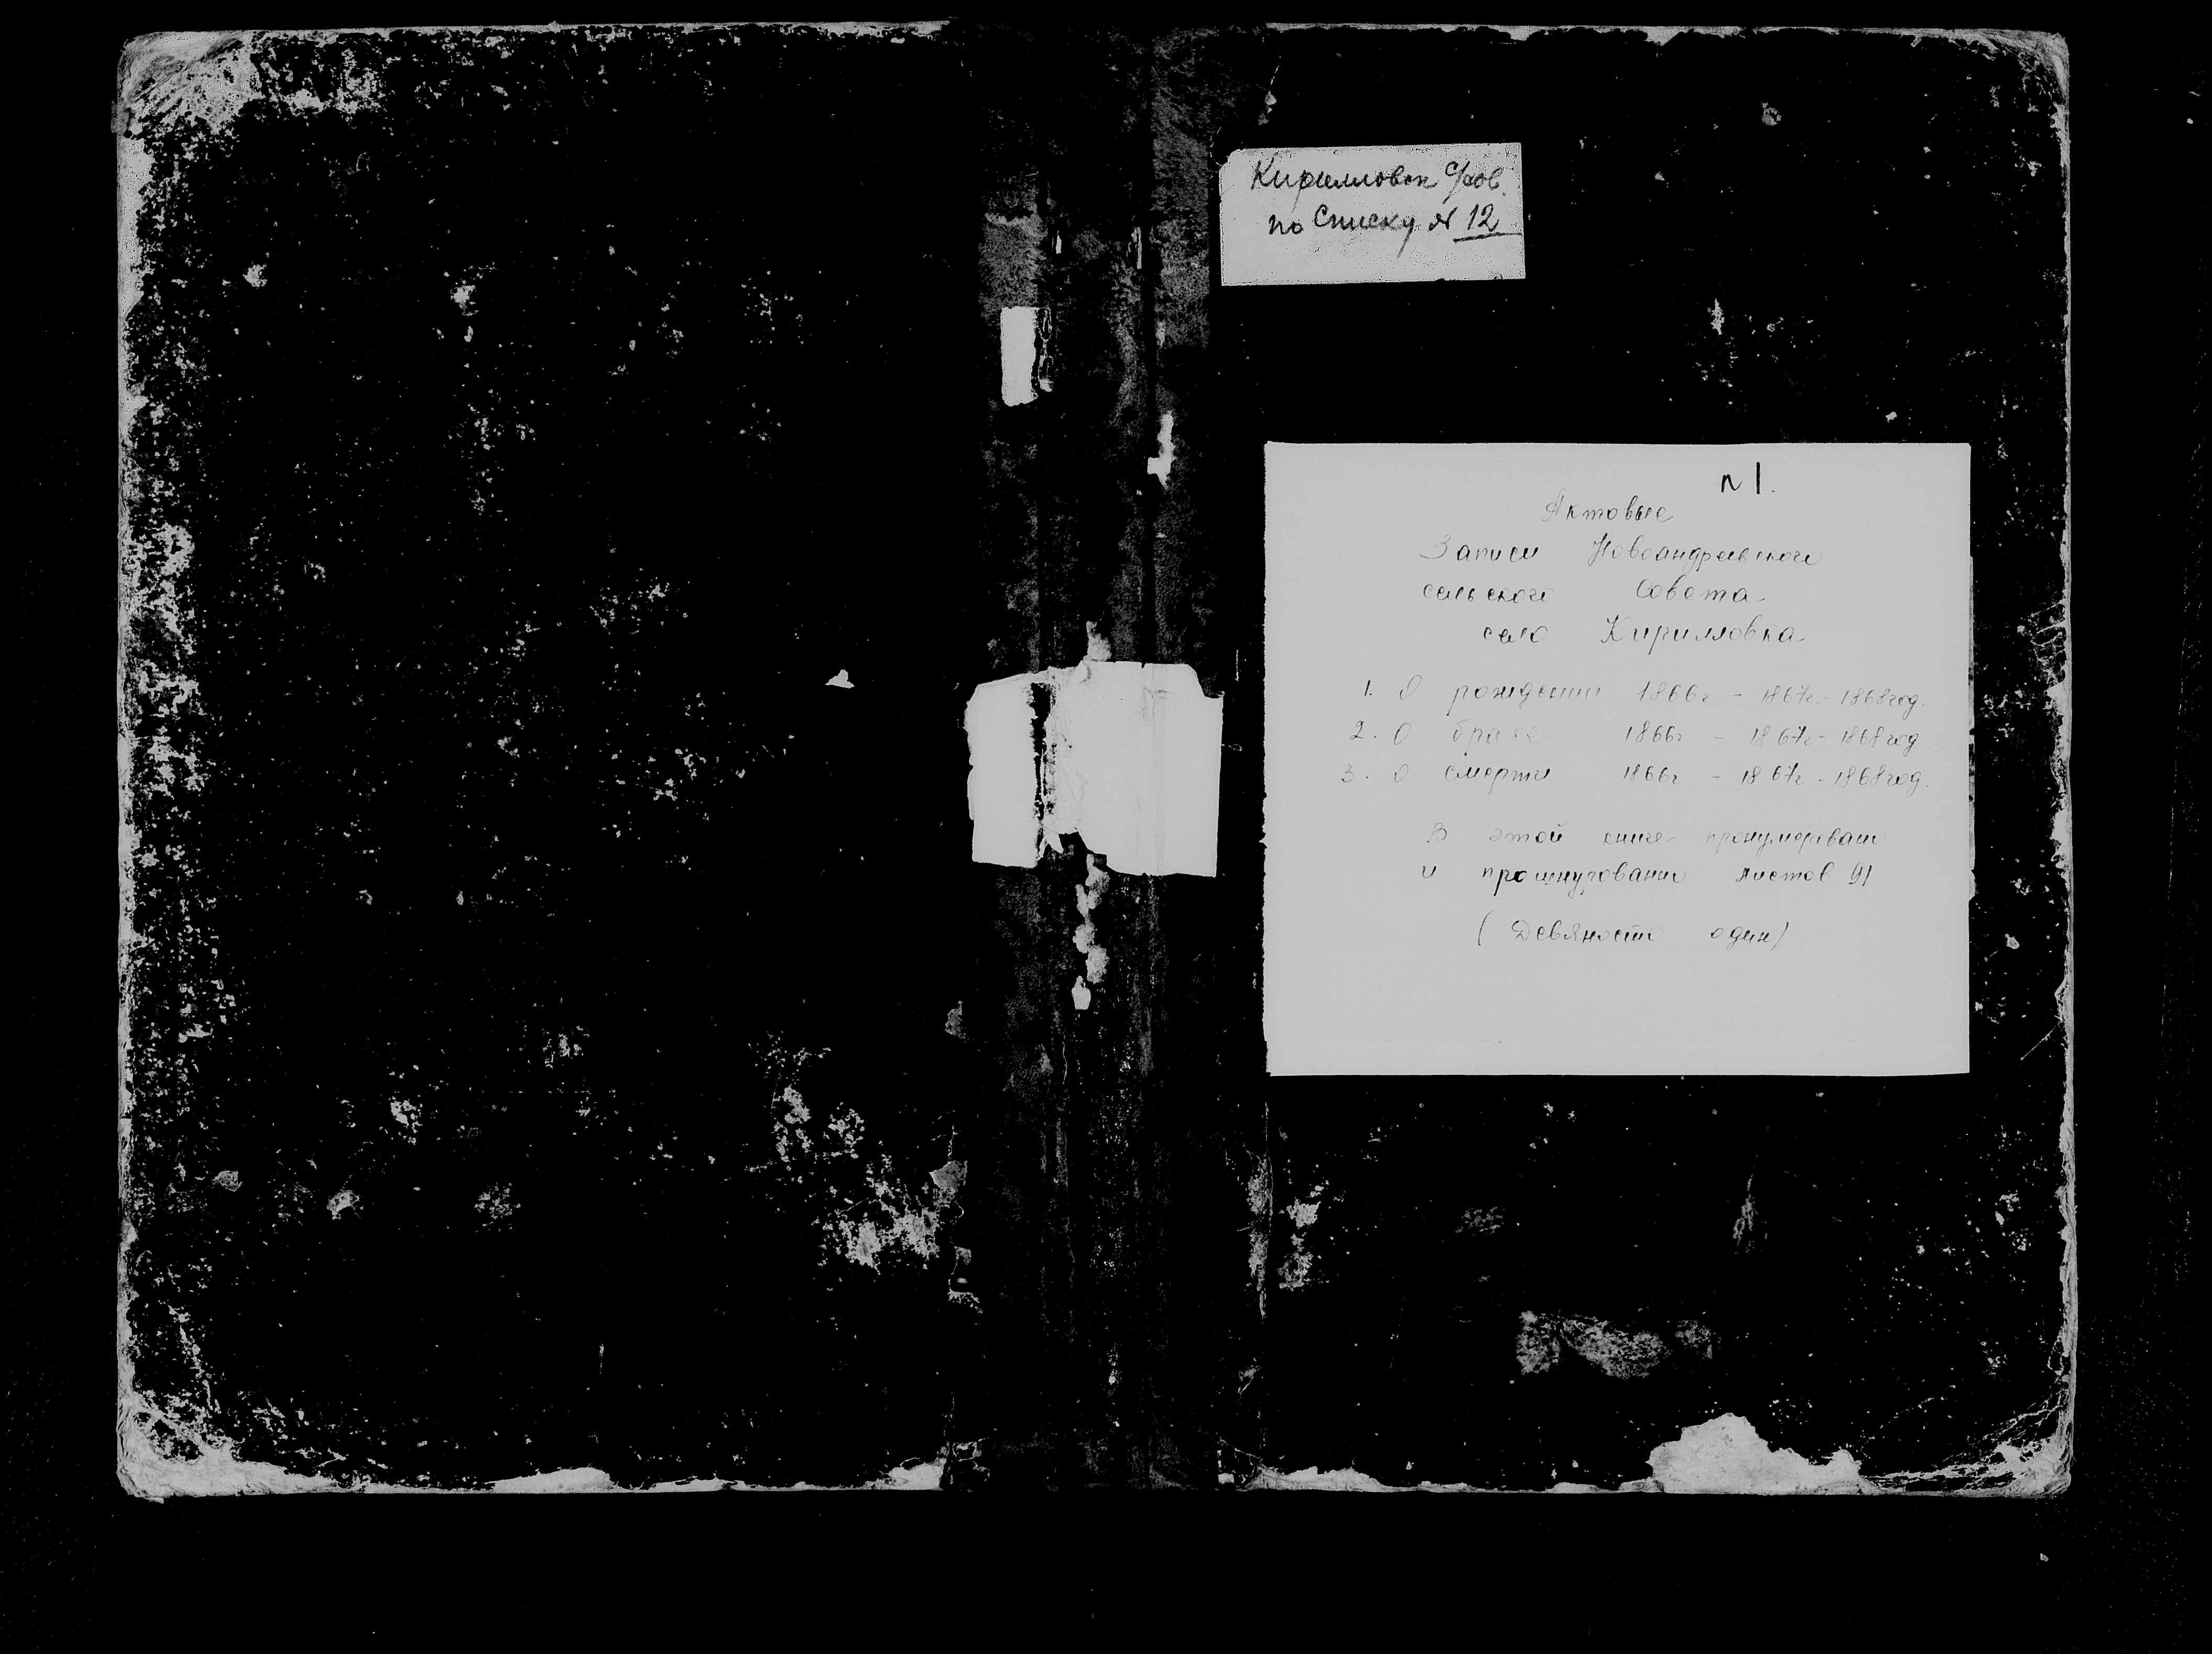 Кирилловск с/сов.
по Списку № 12
№ 1.
Актовые
Записи Новоандреевского
сельского Совета
село Кирилловка
1. О рождении 1866г – 1867г. – 1868 год.
2. О браке 1866г – 1867г – 1868 год
3. О смерти 1866г – 1867г – 1868 год.
В этой книге пронумеровано
и прошнуровано листов 91
(Девяносто один)